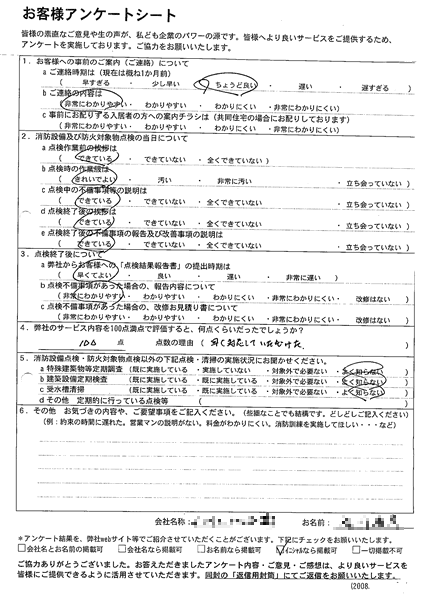 お客様アンケートシート
皆様の素直なご意見や生の声が、私ども企業のパワーの源です。皆様へより良いサービスをご提供するため、
アンケートを実施しております。ご協力をお願いいたします。
1. お客様への事前のご案内（ご連絡）について
a ご連絡時期は（現在は概ね1か月前）
（ 早すぎる ・ 少し早い ・ ちょうど良い ・ 遅い ・ 遅すぎる ）
b ご連絡の内容は
（非常にわかりやすい ・ わかりやすい ・ わかりにくい ・非常にわかりにくい）
c 事前にお配りする入居者の方への案内チラシは（共同住宅の場合にお配りしております）
（非常にわかりやすい ・ わかりやすい ・ わかりにくい ・非常にわかりにくい）
2. 消防設備及び防火対象物点検の当日について
a 点検作業前の挨拶は
（ できている ・ できていない ・ 全くできていない ）
b 点検時の作業服は
（ きれいでよい ・ 汚い ・ 非常に汚い ・ 立ち会っていない ）
c 点検中の不備事項等の説明は
（ できている ・ できていない ・ 全くできていない ・ 立ち会っていない ）
d 点検終了後の挨拶は
（ できている ・ できていない ・ 全くできていない ・ 立ち会っていない ）
e 点検終了後の不備事項の報告及び改善事項の説明は
（ できている ・ できていない ・ 全くできていない ・ 立ち会っていない ）
3. 点検終了後について
a 弊社からお客様への「点検結果報告書」の提出時期は
（ 早くてよい ・ 良い ・ 遅い ・ 非常に遅い ）
b 点検不備事項があった場合の、報告内容について
（非常にわかりやすい ・ わかりやすい ・ わかりにくい ・非常にわかりにくい ・ 改修はない）
c 点検不備事項があった場合の、改修お見積り書について
（非常にわかりやすい ・ わかりやすい ・ わかりにくい ・非常にわかりにくい ・ 改修はない）
4. 弊社のサービス内容を100点満点で評価すると、何点くらいだったでしょうか？
100 点 点数の理由（ 早く対応していただけた。 ）
5. 消防設備点検・防火対象物点検以外の下記点検・清掃の実施状況にお聞かせください。
a 特殊建築物等定期調査 （既に実施している ・ 実施していない ・ 対象外で必要ない ・ よく知らない）
b 建築設備定期検査 （既に実施している ・ 既に実施している ・ 対象外で必要ない ・ よく知らない）
c 受水槽清掃 （既に実施している ・ 既に実施している ・ 対象外で必要ない ・ よく知らない）
d その他 定期的に行っている点検等 （ ）
6. その他 お気づきの内容や、ご要望事項をご記入ください。（些細なことでも結構です。どしどしご記入ください）
（例：約束の時間に遅れた。営業マンの説明がない。料金がわかりにくい。消防訓練を実施して ほしい・・・など）
会社名称： お名前：
*アンケート結果を、弊社webサイト等でご紹介させていただくことがございます。下記にチェックをお願いいたします。
□会社名とお名前の掲載可 □会社名なら掲載可 □お名前なら掲載可 ☑イニシャルなら掲載可 □一切掲載不可
ご協力ありがとうございました。お答えただきましたアンケート内容・ご意見・ご感想は、より良いサービスを
皆様にご提供できるように活用させていただきます。同封の「返信用封筒」にてご返信をお願いいたします。
(2008.